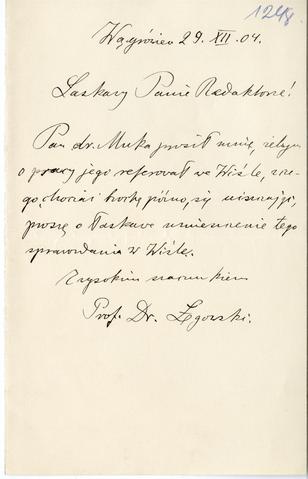 1248
Wągrówiec 29. XII. 04.
Łaskawy Panie Redaktorze!
Pan dr. Muka prosił mnię, żebym
o pracy jego referował w Wiśle, cze-
go, chociaż trochę późno, się uiszczając,
proszę o łaskawe umieszczenie tego
sprawozdania w Wiśle.
Z wysokim szacunkiem
Prof. Dr. Łęgowski.